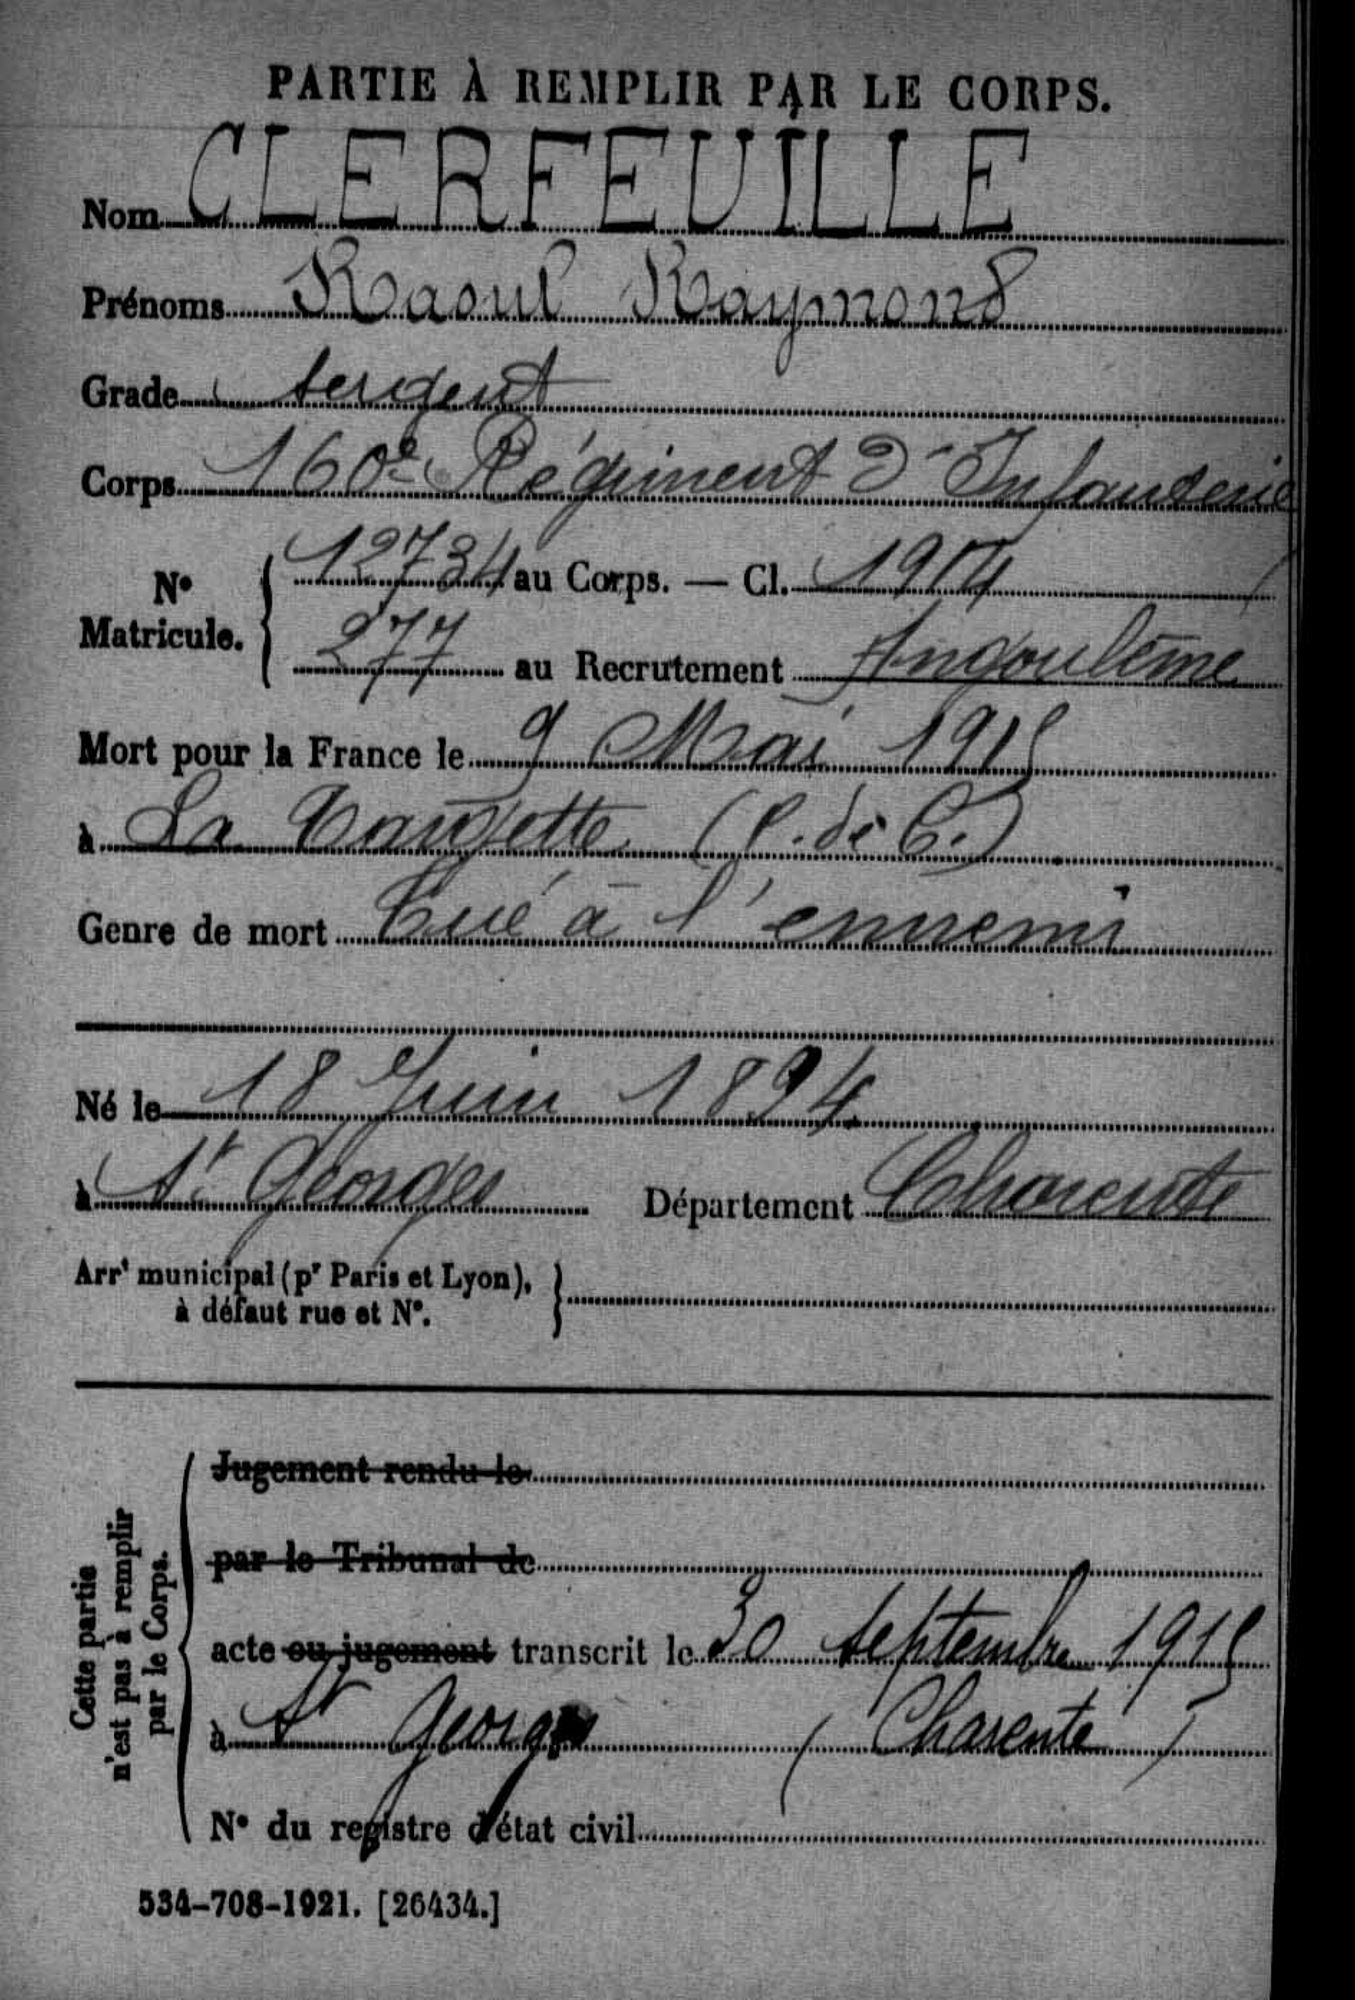 PARTIE À REMPLIR PAR LE CORPS.
Nom CLERFEUILLE
Prénoms Raoul Raymond
Grade Sergent
Corps 160e Régiment d'Infanterie
No Matricule. 12734 au Corps. — Cl. 1914
277 au Recrutement Angoulême
Mort pour la France le 9 Mai 1915
à La Targette (P. de C.)
Genre de mort Tué à l'ennemi
Né le 18 Juin 1894
à St Georges Département Charente
Arrt municipal (pr Paris et Lyon),
à défaut rue et No.
Cette partie
n'est pas à remplir
par le Corps.
Jugement rendu le
par le Tribunal de
acte ou jugement transcrit le 30 Septembre 1915
à St Georges (Charente)
No du registre d'état civil
534-708-1921. [26434.]